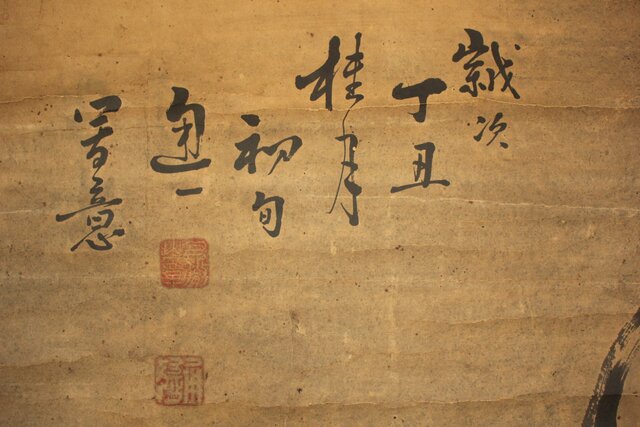 歲次
丁丑
桂月
初旬
一
寫意